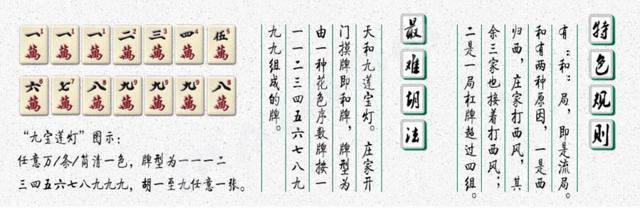 特色规则
有“和”局，即是流局。
和有两种原因，一是西
归西，庄家打西风，其
余三家也接着打西风；
二是一局杠牌超过四组。
最难胡法
天和九莲宝灯。庄家开
门摸牌即和牌，牌型为
由一种花色序数牌按一
一一二三四五六七八九
九九组成的牌。
一萬 一萬 一萬 二萬 三萬 四萬 伍萬
六萬 七萬 八萬 九萬 九萬 九萬 八萬
“九宝莲灯”图示：
任意万/条/筒清一色，牌型为一一一二
三四五六七八九九九，胡一至九任意一张。